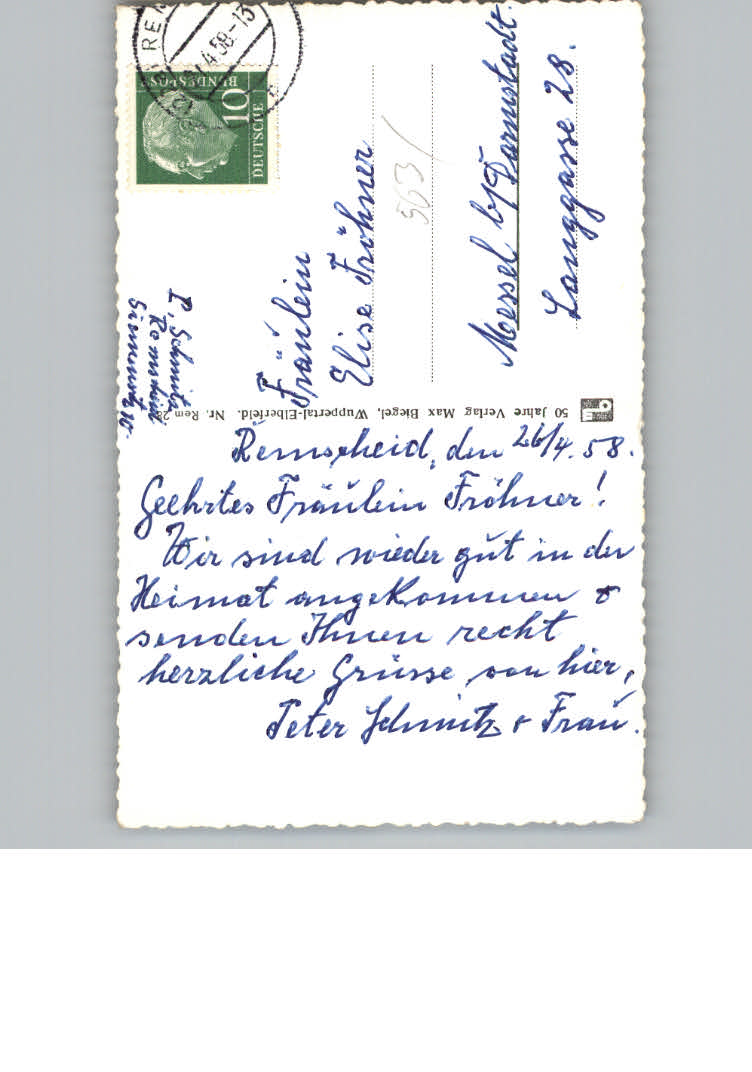 Remscheid, den 26/4.58.
Geehrtes Fräulein Fröhner!
Wir sind wieder gut in der
Heimat angekommen &
senden Ihnen recht
herzliche Grüsse von hier,
Peter Schmitz & Frau.
Fräulein
Elise Fröhner
Messel b/Darmstadt.
Langgasse 28.
P. Schmitz
Remscheid
563/
50 Jahre Verlag Max Biegel, Wuppertal-Elberfeld. Nr. Rem 28
DEUTSCHE
10
BUNDESPOST
REM
4.58-13